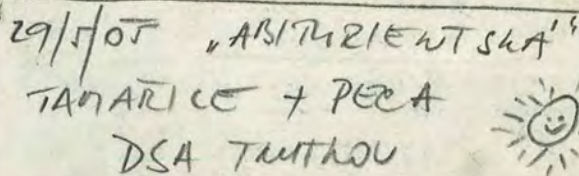 29/5/05 „ABITURIENTSKÁ"
TAMARICE + PECA
DSA TRUTNOV